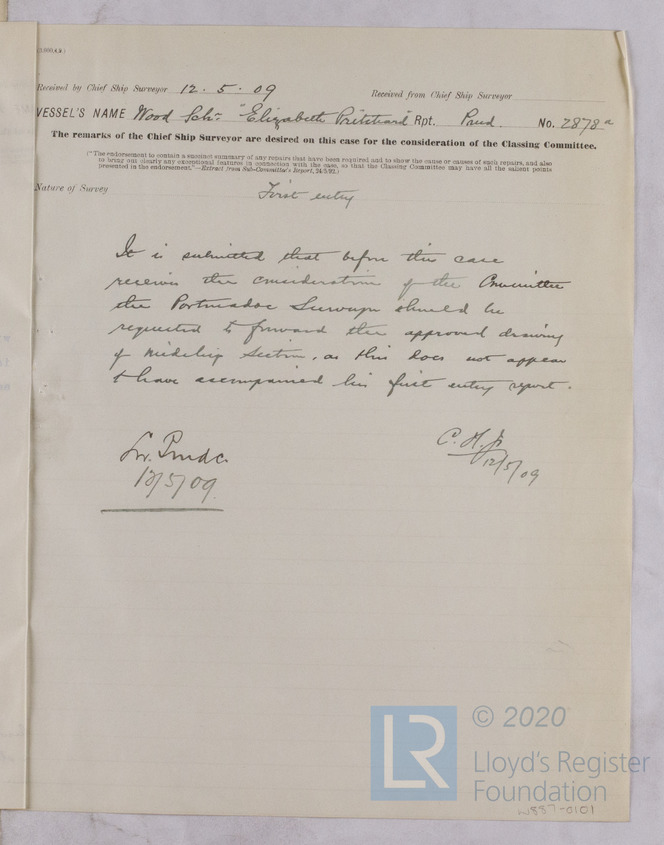 Received by Chief Ship Surveyor 12.5.09
Received from Chief Ship Surveyor
VESSEL'S NAME Wood Schr "Elizabeth Pritchard" Rpt. Pmd. No. 2878a
The remarks of the Chief Ship Surveyor are desired on this case for the consideration of the Classing Committee.
("The endorsement to contain a succinct summary of any repairs that have been required and to show the cause or causes of such repairs, and also
to bring out clearly any exceptional features in connection with the case, so that the Classing Committee may have all the salient points
presented in the endorsement."—Extract from Sub-Committee's Report, 24/3/92.)
Nature of Survey First entry
It is submitted that before this case
receives the consideration of the Committee
the Portmadoc Surveyor should be
requested to forward the approved drawing
of Midship Section, as this does not appear
to have accompanied his first entry report.
Lr. Pmdc.
12/5/09
C.H.J.
12/5/09
LR
© 2020
Lloyd's Register
Foundation
W887-0101